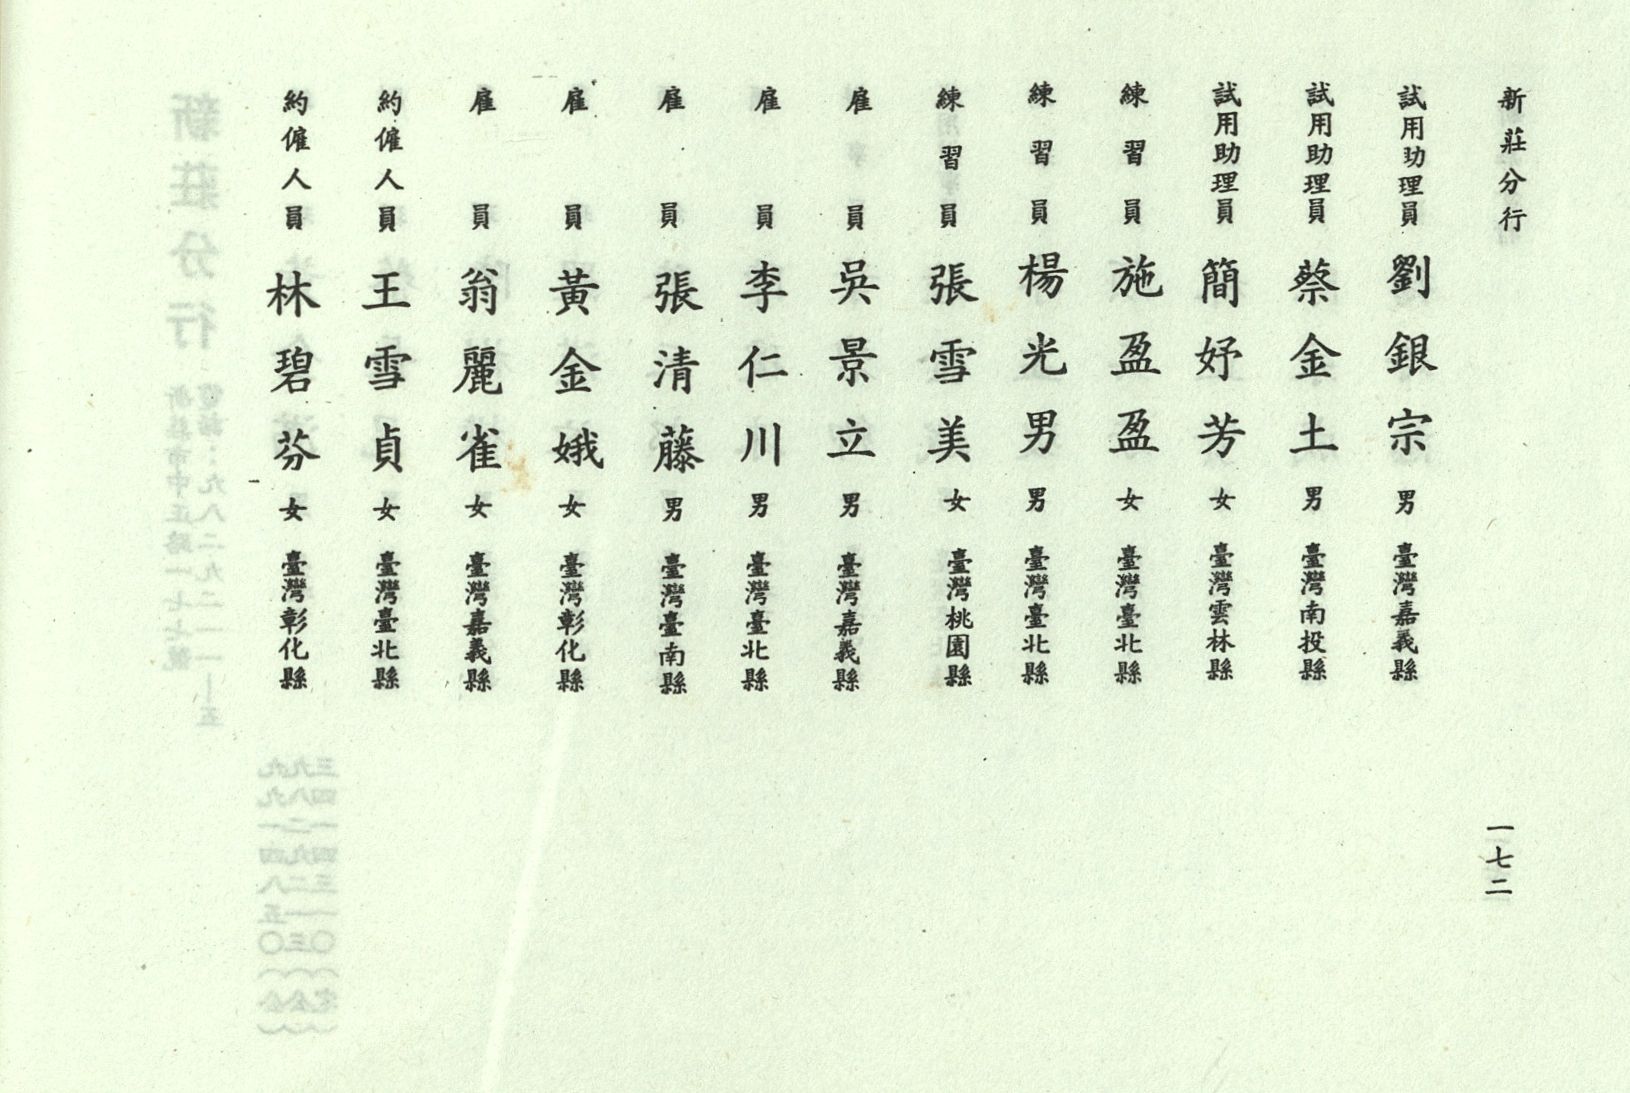 新莊分行
一七二
試用助理員 劉銀宗 男 臺灣嘉義縣
試用助理員 蔡金土 男 臺灣南投縣
試用助理員 簡妤芳 女 臺灣雲林縣
練習員 施盈盈 女 臺灣臺北縣
練習員 楊光男 男 臺灣臺北縣
練習員 張雪美 女 臺灣桃園縣
雇員 吳景立 男 臺灣嘉義縣
雇員 李仁川 男 臺灣臺北縣
雇員 張清藤 男 臺灣臺南縣
雇員 黃金娥 女 臺灣彰化縣
雇員 翁麗雀 女 臺灣嘉義縣
約僱人員 王雪貞 女 臺灣臺北縣
約僱人員 林碧芬 女 臺灣彰化縣